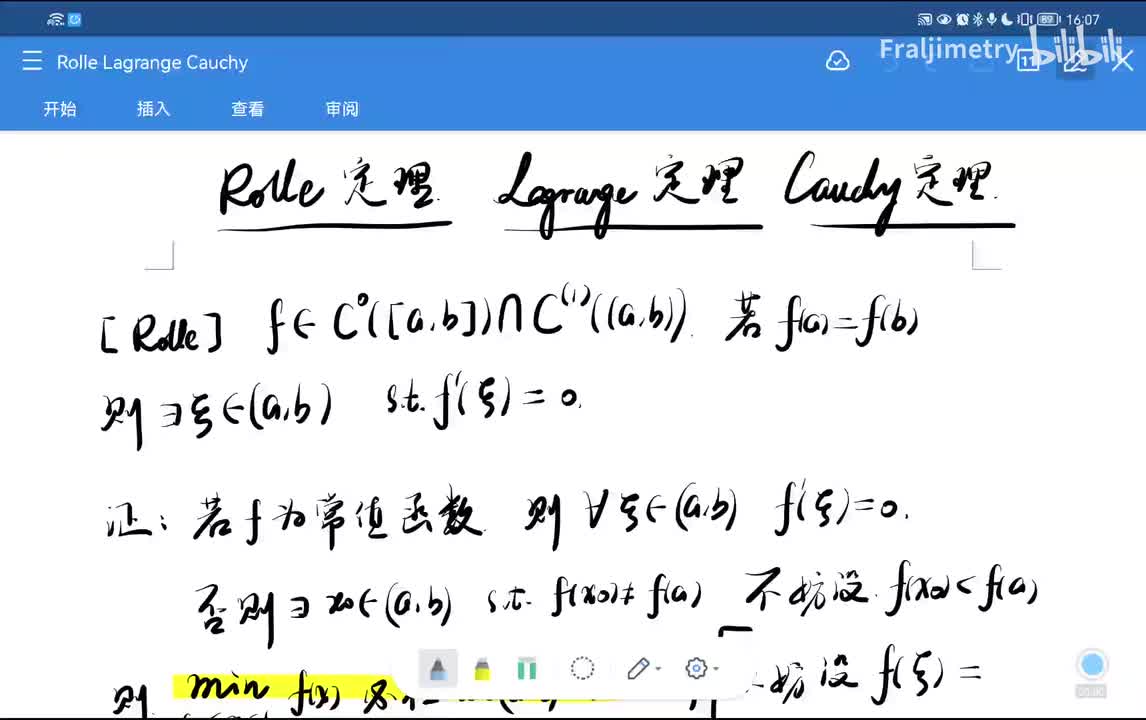 16:07
Rolle Lagrange Cauchy
Fraljimetry bilibili
开始 插入 查看 审阅
Rolle 定理. Lagrange 定理 Cauchy 定理.
[Rolle] f∈C⁰([a,b])∩C⁽¹⁾((a,b)). 若 f(a)=f(b)
则 ∃ξ∈(a,b) s.t. f'(ξ)=0.
证: 若 f 为常值函数 则 ∀ξ∈(a,b) f'(ξ)=0.
否则 ∃x₀∈(a,b) s.t. f(x₀)≠f(a) 不妨设 f(x₀)<f(a)
则 min f(x) 妨设 f(ξ)=